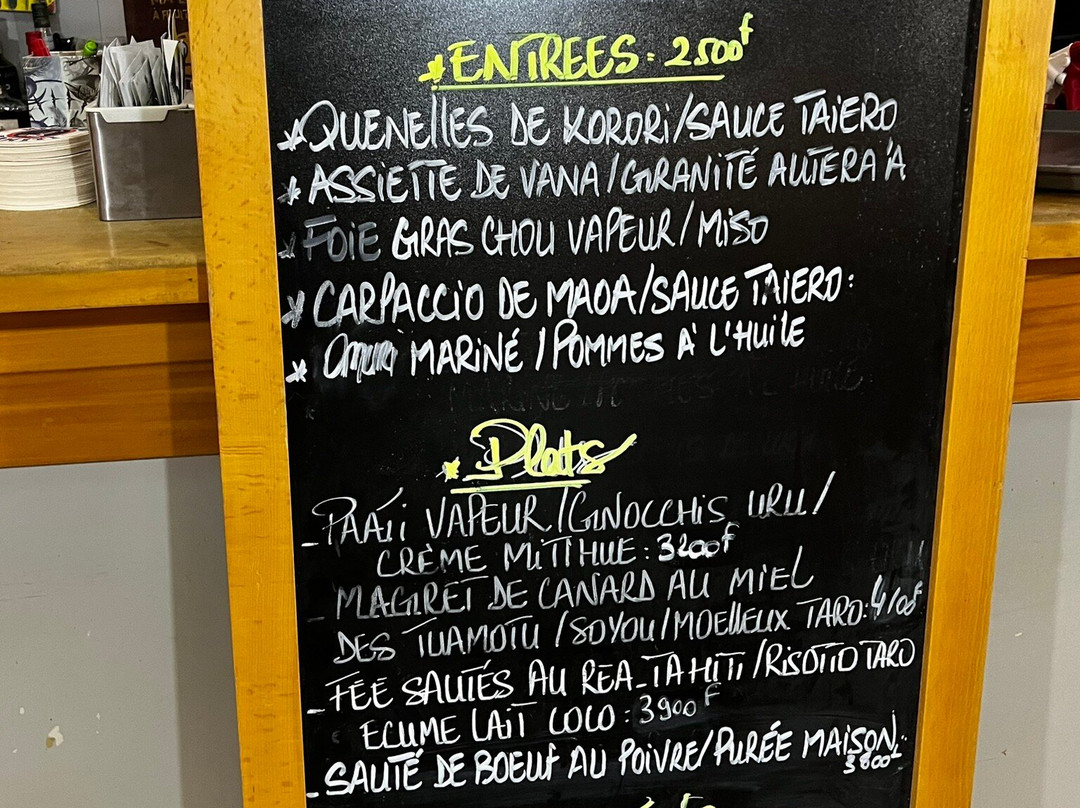 * ENTREES : 2500f
* QUENELLES DE KORORI/SAUCE TAIERO
* ASSIETTE DE VANA / GRANITÉ AUTERA'A
* FOIE GRAS CHOU VAPEUR / MISO
* CARPACCIO DE MAOA/SAUCE TAIERO :
* MARINÉ / POMMES À L'HUILE
* Plats
- PAATI VAPEUR / GINOCCHIS URU /
CRÈME MITIHUE : 3200f
- MAGRET DE CANARD AU MIEL
DES TUAMOTU / SOYOU / MOELLEUX TARO :
- FÉÉ SAUTÉS AU REA_TAHITI / RISOTTO TARO
ECUME LAIT COCO : 3900f
- SAUTÉ DE BOEUF AU POIVRE / PURÉE MAISON